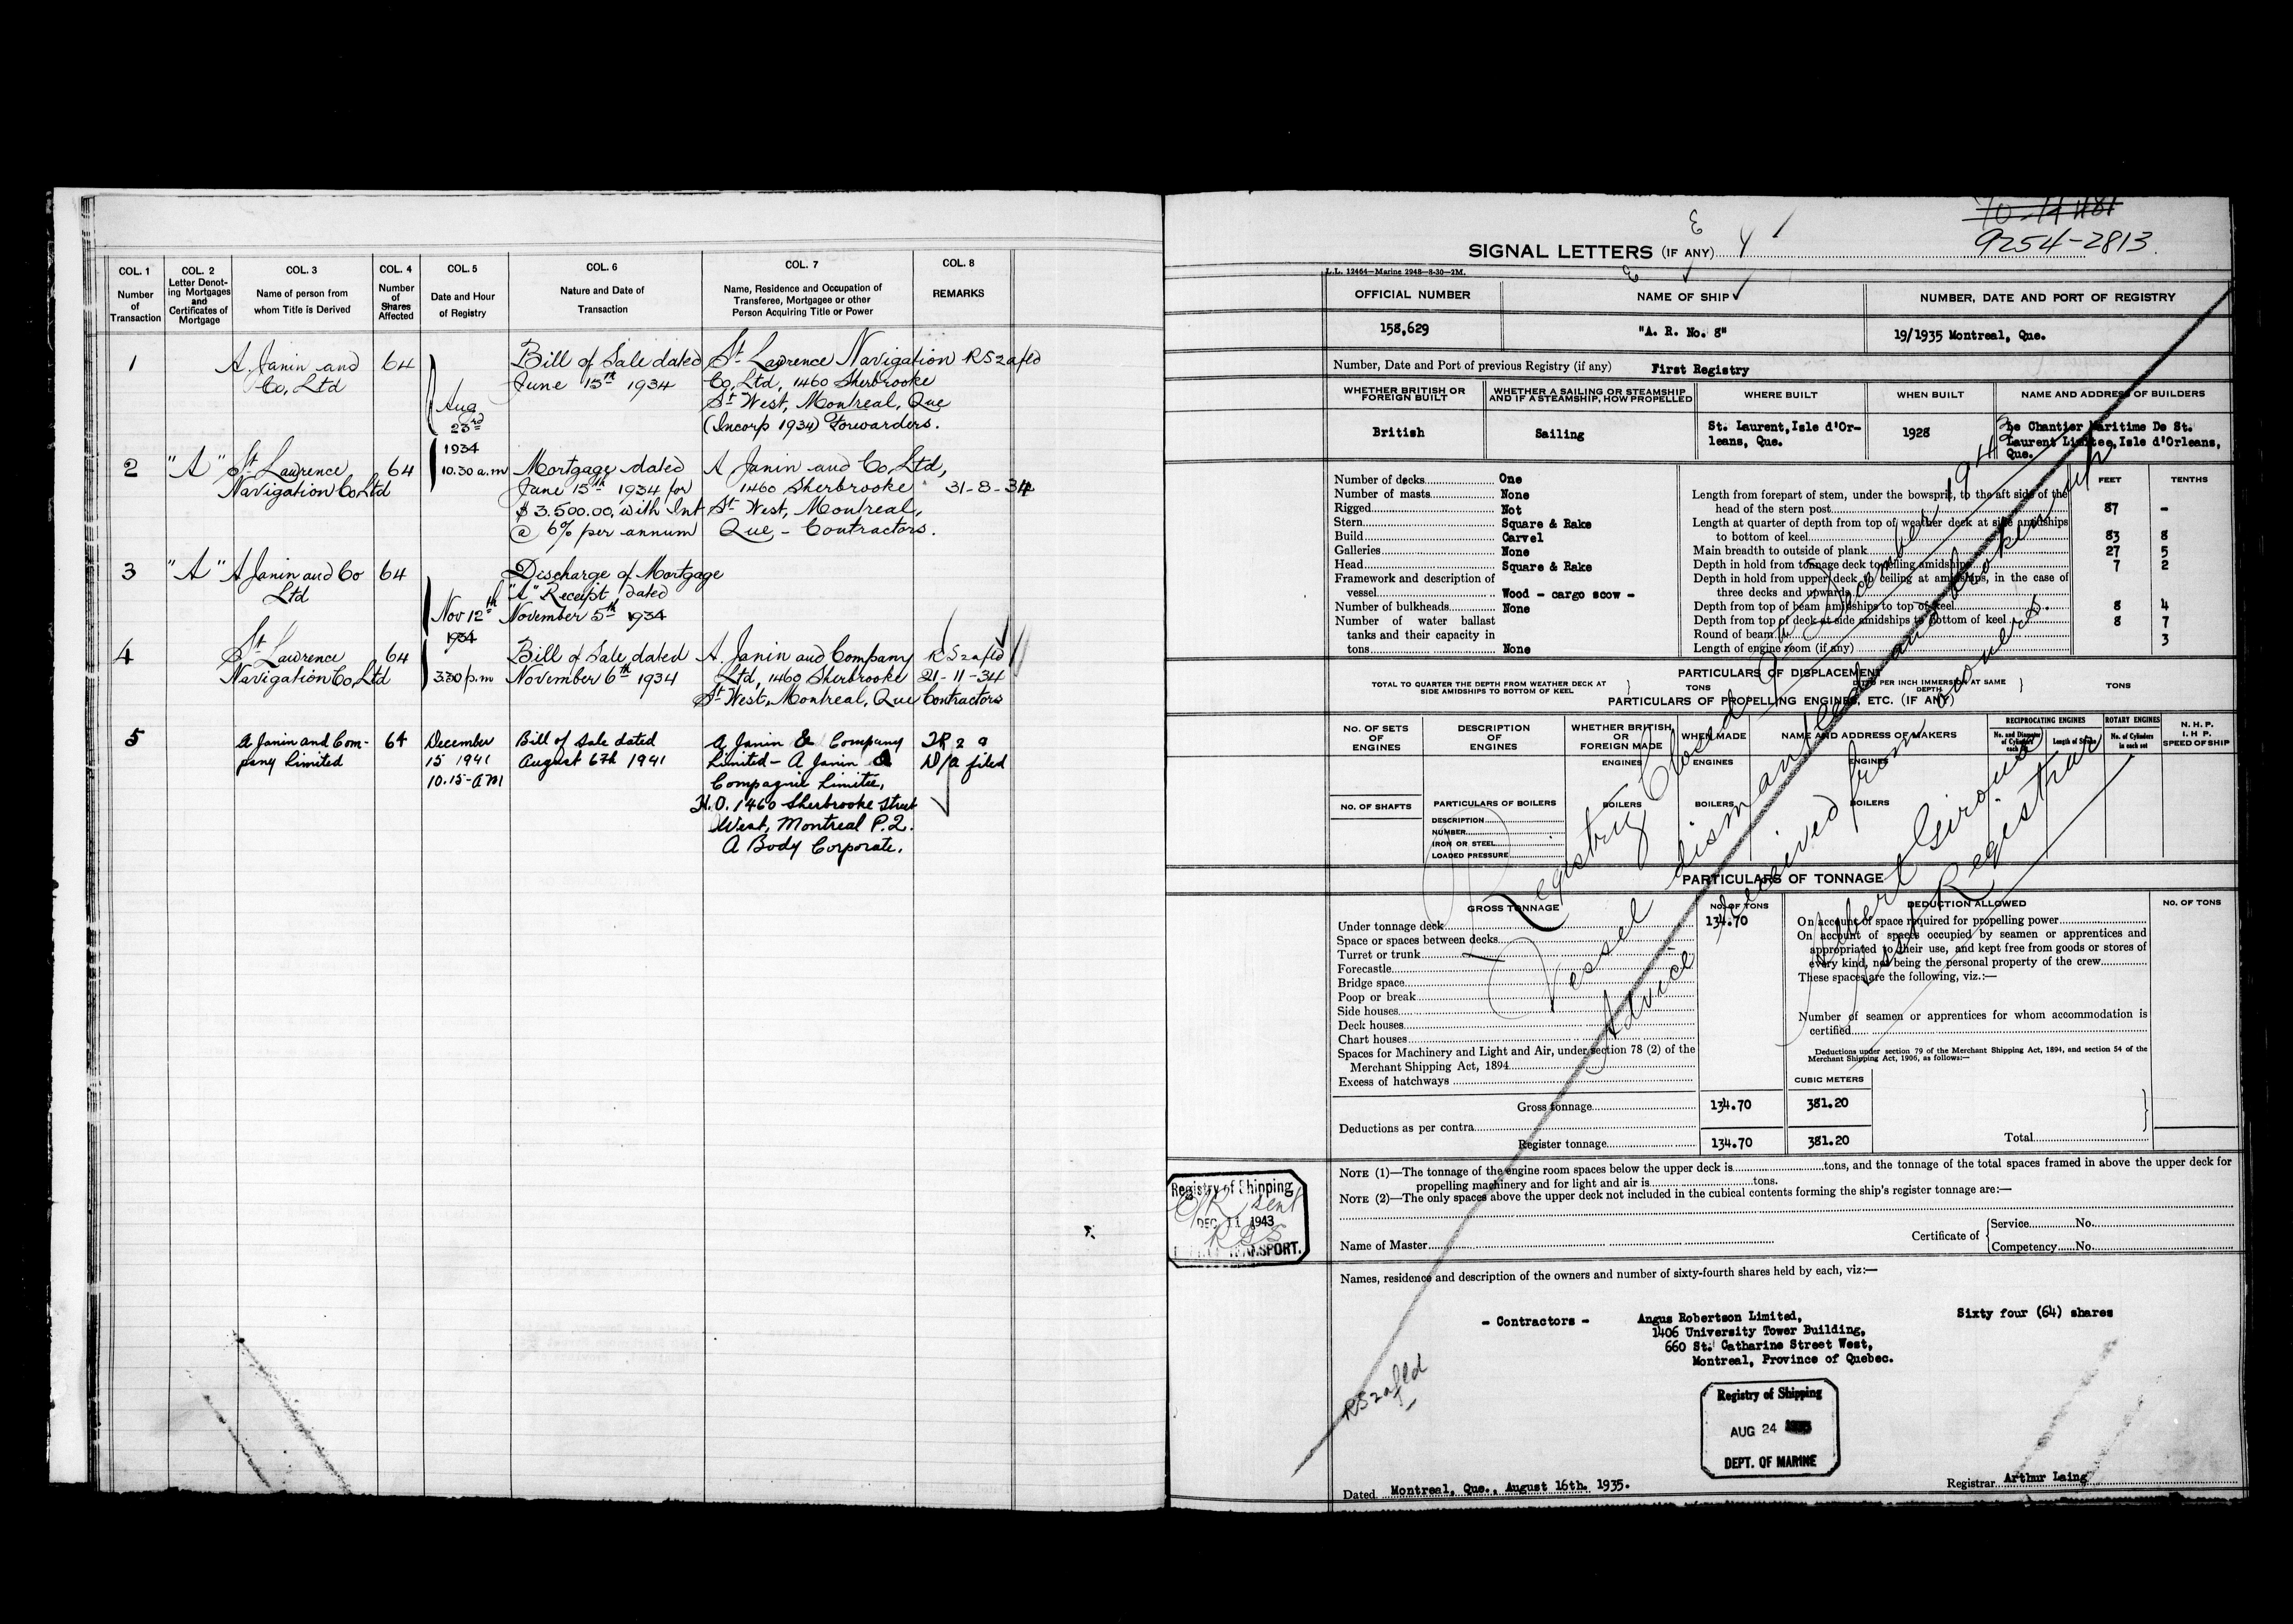 COL. 1
Number
of
Transaction
COL. 2
Letter Denot-
ing Mortgages
and
Certificates of
Mortgage
COL. 3
Name of person from
whom Title is Derived
COL. 4
Number
of
Shares
Affected
COL. 5
Date and Hour
of Registry
COL. 6
Nature and Date of
Transaction
COL. 7
Name, Residence and Occupation of
Transferee, Mortgagee or other
Person Acquiring Title or Power
COL. 8
REMARKS
1
A. Janin and
Co, Ltd
64
Aug
23rd
1934
10.30 a.m
Bill of Sale dated
June 15th 1934
St Lawrence Navigation
Co, Ltd, 1460 Sherbrooke
St West, Montreal, Que
(Incorp 1934) Forwarders.
RS2afld
2
"A"
St Lawrence
Navigation Co Ltd
64
Mortgage dated
June 15th 1934 for
$3.500.00, with Int
@ 6% per annum
A Janin and Co, Ltd,
1460 Sherbrooke
St West, Montreal,
Que, - Contractors.
31-8-34
3
"A"
A Janin and Co
Ltd
64
Nov 12th
1934
3.30 p.m
Discharge of Mortgage
"A" Receipt, dated
November 5th 1934
4
St Lawrence
Navigation Co, Ltd
64
Bill of Sale dated
November 6th 1934
A. Janin and Company
Ltd, 1460 Sherbrooke
St West, Montreal, Que Contractors
RS2afld
21-11-34
5
A Janin and Com-
pany Limited
64
December
15 1941
10.15-AM
Bill of Sale dated
August 6th 1941
A Janin & Company
Limited - A Janin &
Compagnie Limitée,
H.O. 1460 Sherbrooke Street
West, Montreal P.Q.
A Body Corporate.
D/a filed
9254-2813
SIGNAL LETTERS (IF ANY)
L.L. 12464—Marine 2948—8-30—2M.
OFFICIAL NUMBER
NAME OF SHIP
NUMBER, DATE AND PORT OF REGISTRY
158,629
"A. R. No. 8"
19/1935 Montreal, Que.
Number, Date and Port of previous Registry (if any) First Registry
WHETHER BRITISH OR
FOREIGN BUILT
WHETHER A SAILING OR STEAMSHIP
AND IF A STEAMSHIP, HOW PROPELLED
WHERE BUILT
WHEN BUILT
NAME AND ADDRESS OF BUILDERS
British
Sailing
St. Laurent, Isle d'Or-
leans, Que.
1928
Le Chantier Maritime De St.
Laurent Limitee, Isle d'Orleans,
Que.
Number of decks One
Number of masts None
Rigged Not
Stern Square & Rake
Build Carvel
Galleries None
Head Square & Rake
Framework and description of
vessel Wood - cargo scow -
Number of bulkheads None
Number of water ballast
tanks and their capacity in
tons None
FEET TENTHS
Length from forepart of stem, under the bowsprit, to the aft side of the
head of the stern post 87 -
Length at quarter of depth from top of weather deck at side amidships
to bottom of keel 83 8
Main breadth to outside of plank 27 5
Depth in hold from tonnage deck to ceiling amidships 7 2
Depth in hold from upper deck to ceiling at amidships, in the case of
three decks and upwards
Depth from top of beam amidships to top of keel 8 4
Depth from top of deck at side amidships to bottom of keel 8 7
Round of beam 3
Length of engine room (if any)
PARTICULARS OF DISPLACEMENT
TOTAL TO QUARTER THE DEPTH FROM WEATHER DECK AT
SIDE AMIDSHIPS TO BOTTOM OF KEEL
TONS
DITTO PER INCH IMMERSION AT SAME
DEPTH
TONS
PARTICULARS OF PROPELLING ENGINES, ETC. (IF ANY)
NO. OF SETS
OF
ENGINES
DESCRIPTION
OF
ENGINES
WHETHER BRITISH,
OR
FOREIGN MADE
WHEN MADE
NAME AND ADDRESS OF MAKERS
RECIPROCATING ENGINES
No. and Diameter
of Cylinders
each set
Length of Stroke
ROTARY ENGINES
No. of Cylinders
in each set
N. H. P.
I. H P.
SPEED OF SHIP
ENGINES
ENGINES
ENGINES
NO. OF SHAFTS
PARTICULARS OF BOILERS
DESCRIPTION
NUMBER
IRON OR STEEL
LOADED PRESSURE
BOILERS
BOILERS
BOILERS
PARTICULARS OF TONNAGE
GROSS TONNAGE
NO. OF TONS
DEDUCTION ALLOWED
NO. OF TONS
Under tonnage deck 134.70
Space or spaces between decks
Turret or trunk
Forecastle
Bridge space
Poop or break
Side houses
Deck houses
Chart houses
Spaces for Machinery and Light and Air, under section 78 (2) of the
Merchant Shipping Act, 1894
Excess of hatchways
On account of space required for propelling power
On account of spaces occupied by seamen or apprentices and
appropriated to their use, and kept free from goods or stores of
every kind, not being the personal property of the crew
These spaces are the following, viz.:—
Number of seamen or apprentices for whom accommodation is
certified
Deductions under section 79 of the Merchant Shipping Act, 1894, and section 54 of the
Merchant Shipping Act, 1906, as follows:—
CUBIC METERS
Gross tonnage 134.70 381.20
Deductions as per contra
Register tonnage 134.70 381.20
Total
Registry Closed December 194
Vessel dismantled and broken up
Advice received from owners.
Albert Giroux
Asst Registrar
NOTE (1)—The tonnage of the engine room spaces below the upper deck is tons, and the tonnage of the total spaces framed in above the upper deck for
propelling machinery and for light and air is tons.
NOTE (2)—The only spaces above the upper deck not included in the cubical contents forming the ship's register tonnage are:—
Registry of Shipping
DEC 11 1943
TRANSPORT.
Name of Master
Certificate of
Service No.
Competency No.
Names, residence and description of the owners and number of sixty-fourth shares held by each, viz:—
- Contractors -
Angus Robertson Limited,
1406 University Tower Building,
660 St. Catharine Street West,
Montreal, Province of Quebec.
Sixty four (64) shares
RS2afld
Registry of Shipping
AUG 24
DEPT. OF MARINE
Dated Montreal, Que., August 16th. 1935.
Registrar Arthur Laing